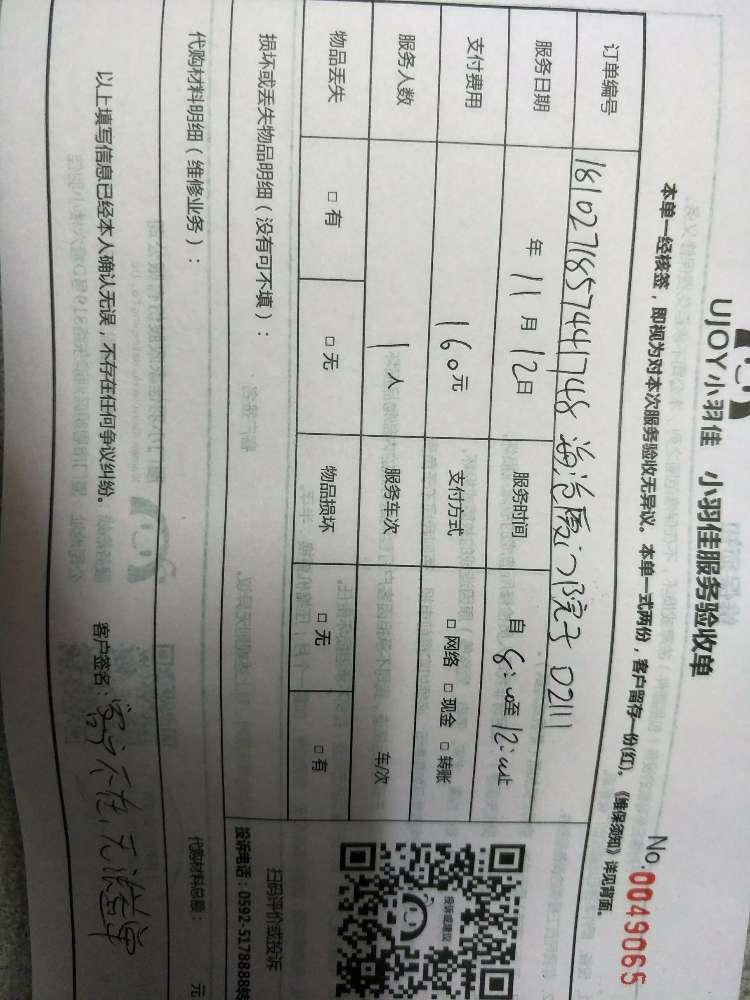 UJOY小羽佳 小羽佳服务验收单
No.0049065
本单一经核签，即视为对本次服务验收无异议。本单一式两份，客户留存一份(红)。《维保须知》详见背面。
订单编号 181027185744 1748 海沧厦门院子 D2111
服务日期 年 11 月 12日 服务时间 自 8:00至 12:00止
支付费用 160元 支付方式 □ 网络 □ 现金 □ 转账
服务人数 1 人 服务车次 车/次
物品丢失 □ 有 □ 无 物品损坏 □ 无 □ 有
损坏或丢失物品明细（没有可不填）：
投诉或建议
扫码评价或投诉
投诉电话：0592-5178888转
代购材料明细（维修业务）：
代购材料总额： 元
以上填写信息已经本人确认无误，不存在任何争议纠纷。 客户签名：客户不在，无法签单